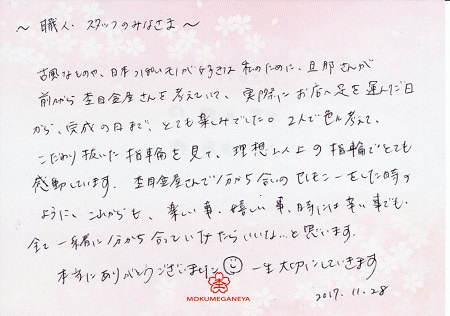 〜 職人・スタッフのみなさま 〜
古風なものや、日本っぽいものが好きな私のために、旦那さんが
前から杢目金屋さんを考えていて、実際にお店へ足を運んだ日
から、完成の日まで、とても楽しみでした。2人で色々考えて、
こだわり抜いた指輪を見て、理想以上の指輪でとても
感動しています。杢目金屋さんで分かち合いのセレモニーをした時の
ように、これからも、楽しい事・嬉しい事、時には辛い事でも
全て一緒に分かち合っていけたらいいな…と思います。
本当にありがとうございました 一生大切にしていきます
MOKUMEGANEYA
2017.11.28